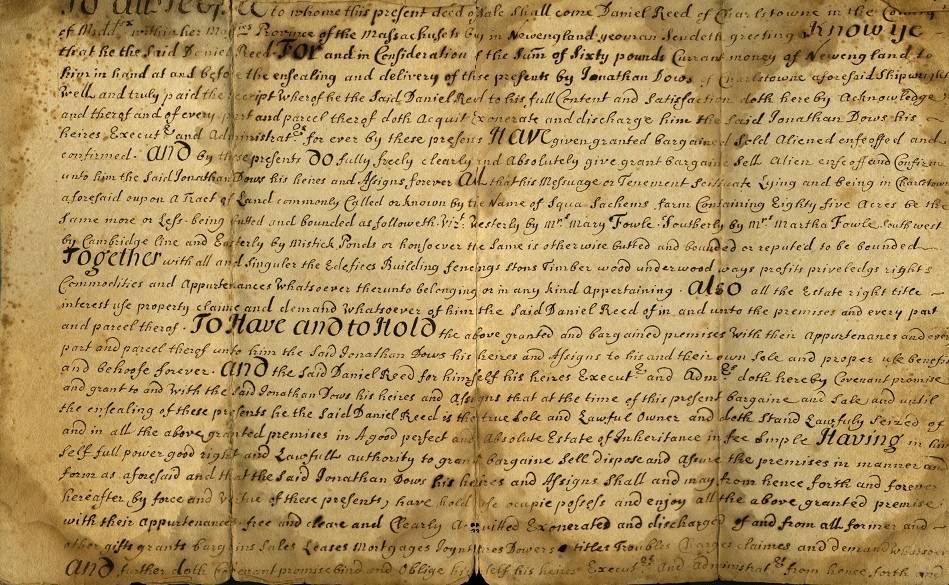 To all People to whome this present deed of Sale Shall come Daniel Reed of Charlstowne in the County
of Midd.sx within her Maj.ties Province of the Massachusets bay in Newengland yeoman Sendeth greeting Know ye
that he the Said Daniel Reed For and in Consideration of the Sum of Sixty pounds Currant money of Newengland to
him in hand at and before the ensealing and delivery of these presents by Jonathan Dows of Charlstowne aforesaid Shipwright
Well and truly paid the receipt Wherof he the Said Daniel Reed to his full Content and Satisfaction doth hereby Acknowledge
and therof and of every part and parcel therof doth Acquit Exonerate and discharge him the Said Jonathan Dows his
heires Execut.rs and Administrat.rs for ever by these presents Have given granted bargained Sold Aliened enfeoffed and
confirmed. And by these presents Do fully freely clearly and Absolutely give grant bargaine Sell Alien enfeoff and Confirm
unto him the Said Jonathan Dows his heires and Assigns forever All that his Mesuage or Tenement Scituate Lying and being in Charlstown
aforesaid upon a Tract of Land commonly Called or known by the Name of Squa Sachems farm Containing Eighty five Acres be the
Same more or Less being butted and bounded as followeth Viz.t Westerly by M.rs Mary Fowle Southerly by M.rs Martha Fowle Southwest
by Cambridge Line and Easterly by Mistick Ponds or howsoever the Same is otherwise butted and bounded or reputed to be bounded
Together with all and Singuler the Edefices Building fencings Stons Timber wood underwood ways profits priveledgs rights
Commodities and Appurtenances Whatsoever therunto belonging or in any Kind Appertaining. Also all the Estate right title
interest use property claime and demand Whatsoever of him the Said Daniel Reed of in and unto the premises and every part
and parcel therof. To Have and to Hold the above granted and bargained premises With their Appurtenances and every
part and parcel therof unto him the Said Jonathan Dows his heires and Assigns to his and their own Sole and proper use benefit
and behoofe forever. And the Said Daniel Reed for himself his heires Execut.rs and Adm.rs doth hereby Covenant promise
and grant to and With the Said Jonathan Dows his heires and Assigns that at the time of this present bargaine and Sale and until
the ensealing of these presents he the Said Daniel Reed is the true Sole and Lawful Owner and doth Stand Lawfuly Seized of
and in all the above granted premises in A good perfect and Absolute Estate of Inheritance in fee Simple Having in him
Self full power good right and Lawfull authority to grant bargaine Sell dispose and Assure the premises in manner and
form as aforesaid and that the Said Jonathan Dows his heires and Assigns Shall and may from hence forth and forever
hereafter by force and Virtue of these presents, have hold use ocupie possess and enjoy all the above granted premises
with their Appurtenances free and cleare and Clearly Acquitted Exonerated and discharged of and from all former and
other gifts grants bargains Sales Leases Mortgages Joyntures Dowers titles Troubles Charges claimes and demands whatsoever
And further doth Covenant promise bind and Oblige himself his heires Execut.rs And Administrat.rs from hence forth and